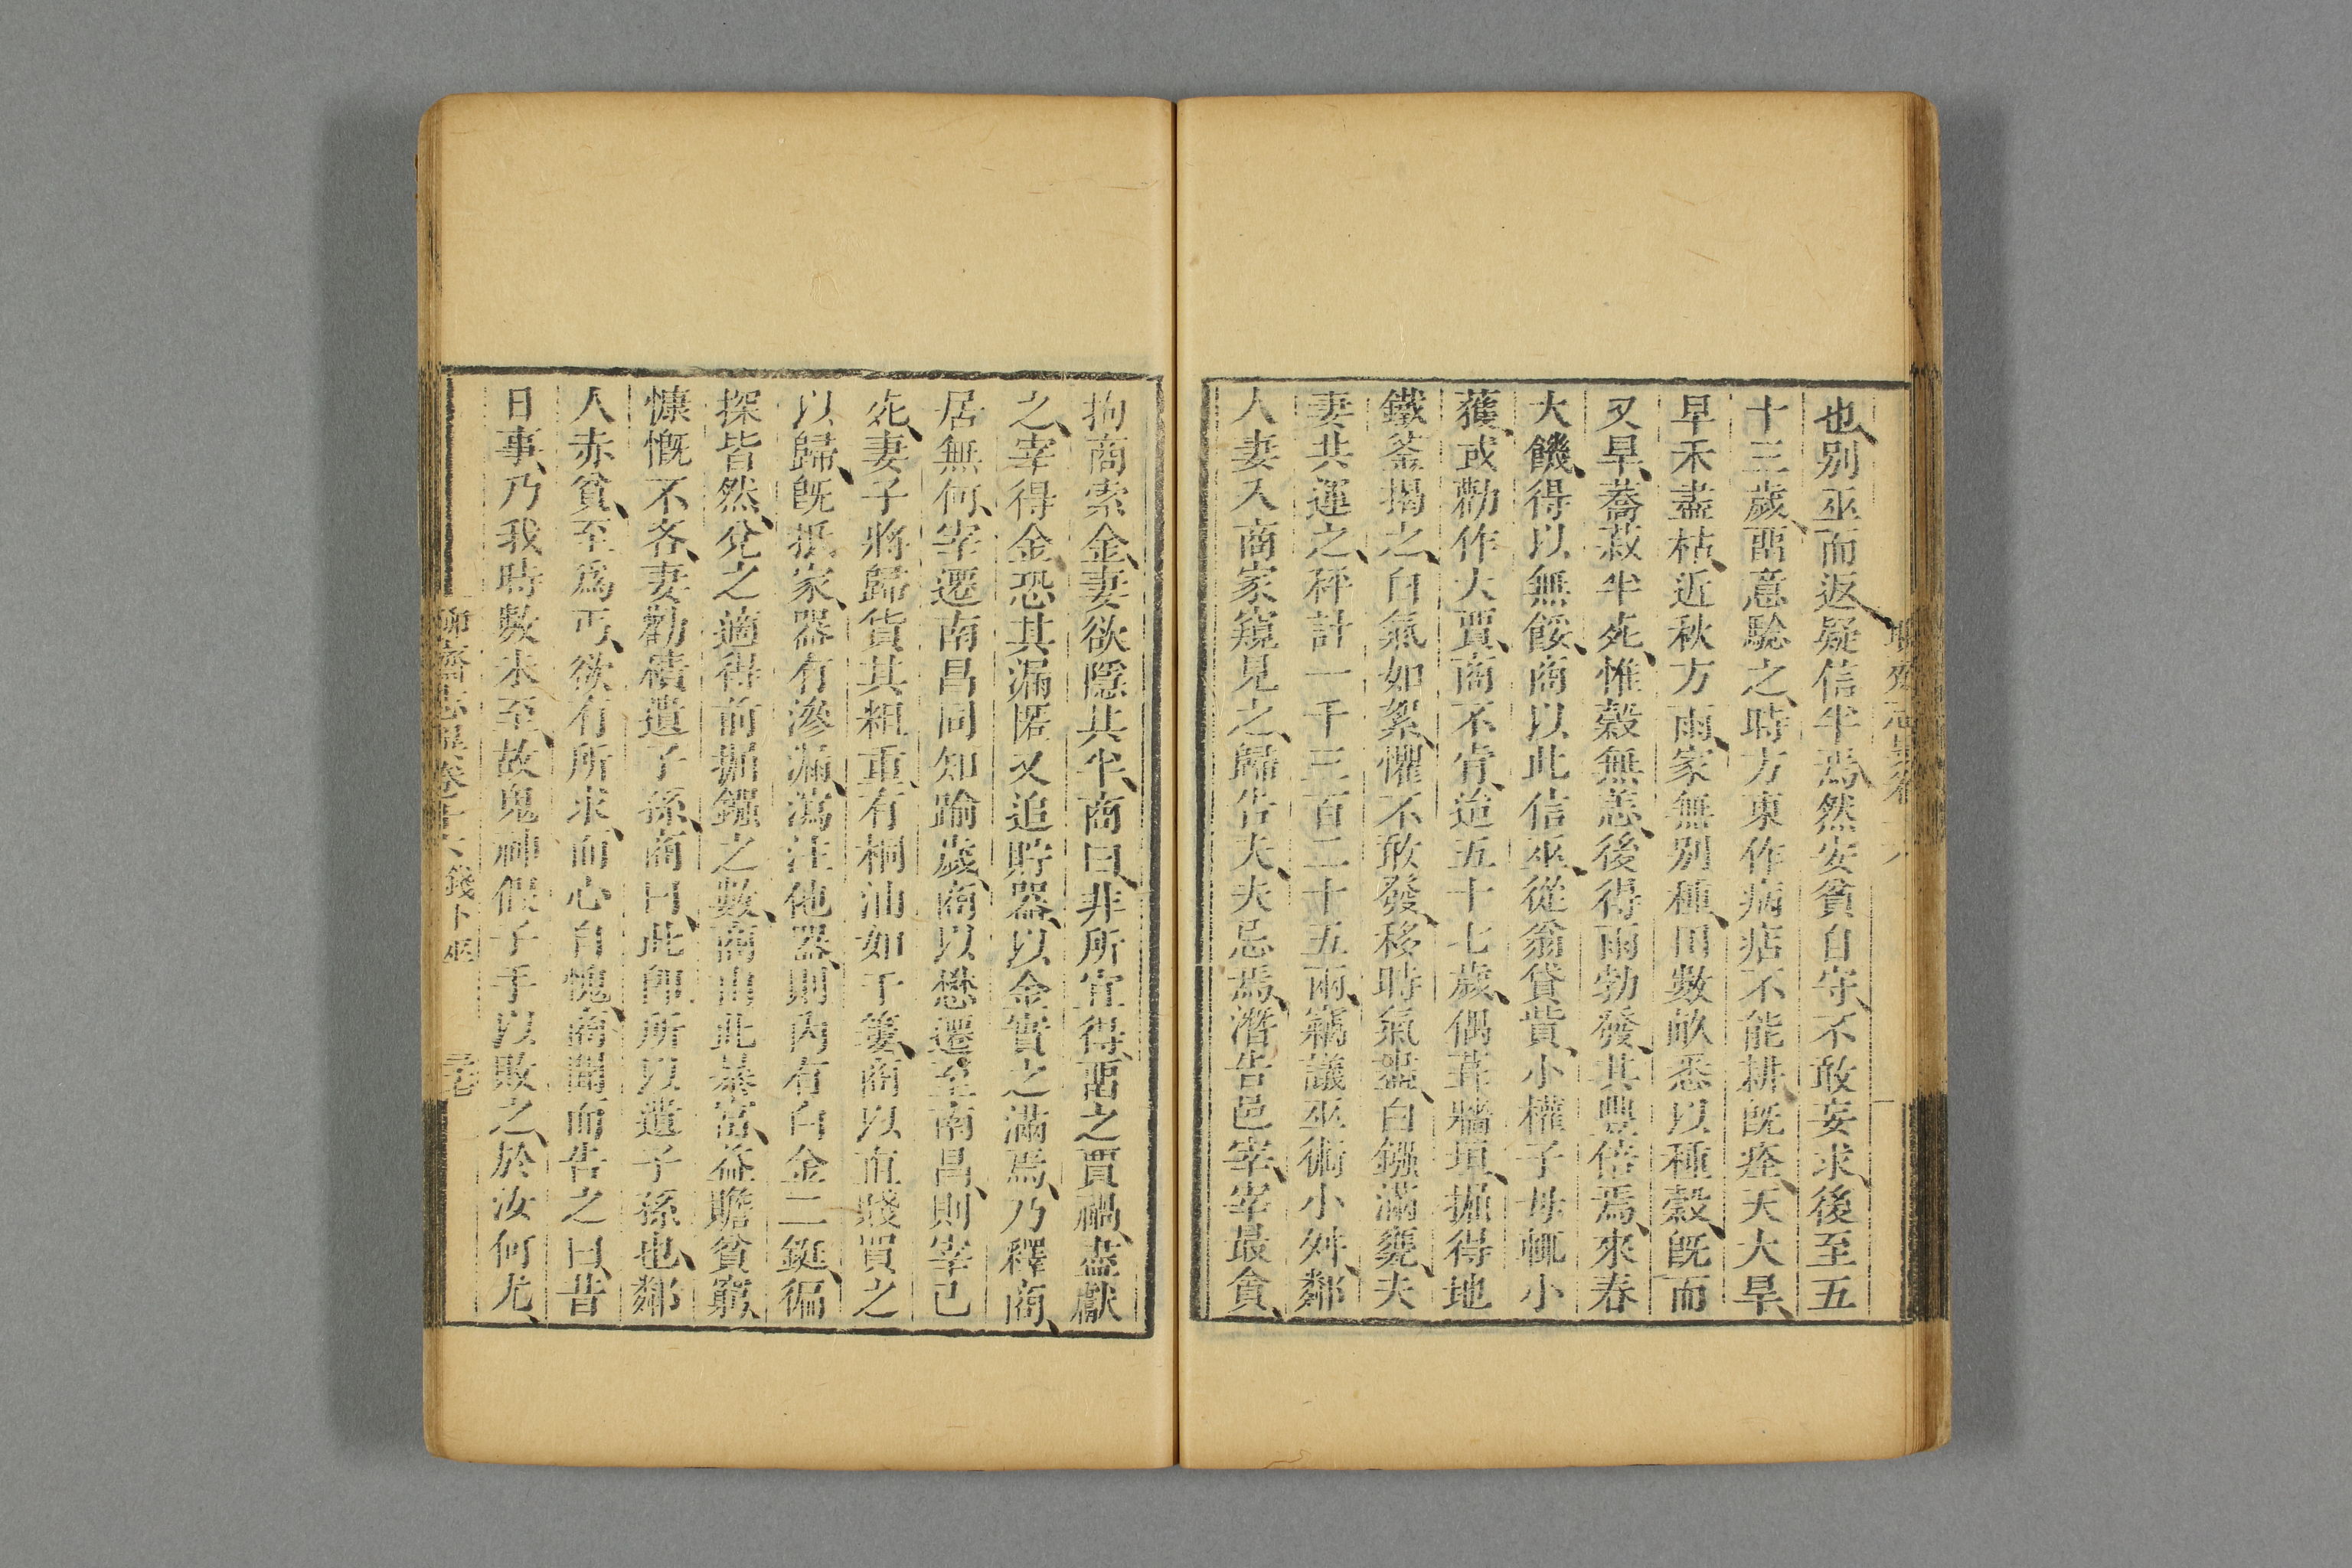 也、別巫而返疑信半焉、然安貧自守、不敢妄求、後至五
十三歲、畱意驗之、時方東作病痁不能耕、旣痊、天大旱、
早禾盡枯、近秋方雨、家無別種、田數畝悉以種穀、旣而
又旱、蕎菽半死、惟穀無恙、後得雨勃發、其豐倍焉、來春
大饑、得以無餒、商以此信巫、從翁貸貲、小權子母輒小
獲、或勸作大賈、商不肯、迨五十七歲、偶葺牆垣、掘得地
鐵釜揭之、白氣如絮、懼不敢發、移時氣盡、白鏹滿甕、夫
妻共運之、秤計一千三百二十五兩、竊議巫術小舛、鄰
人妻入商家窺見之、歸告夫、夫忌焉、潛告邑宰、宰最貪、
拘商索金、妻欲隱其半、商曰、非所宜得、畱之賈禍、盡獻
之、宰得金恐其漏匿又追貯器、以金實之滿焉、乃釋商、
居無何、宰遷南昌同知踰歲、商以懋遷至南昌、則宰已
死、妻子將歸貨其粗重、有桐油如干簍、商以直賤買之
以歸、旣抵家、器有滲漏、瀉注他器、則內有白金二鋌、徧
探皆然、兌之適得前掘鏹之數、商由此暴富、益贍貧窮、
慷慨不吝、妻勸積遺子孫、商曰、此卽所以遺子孫也、鄰
人赤貧、至爲丐、欲有所求、而心自愧、商聞而告之曰、昔
日事、乃我時數未至、故鬼神假子手以敗之、於汝何尤、
聊齋志異卷十六 錢卜巫